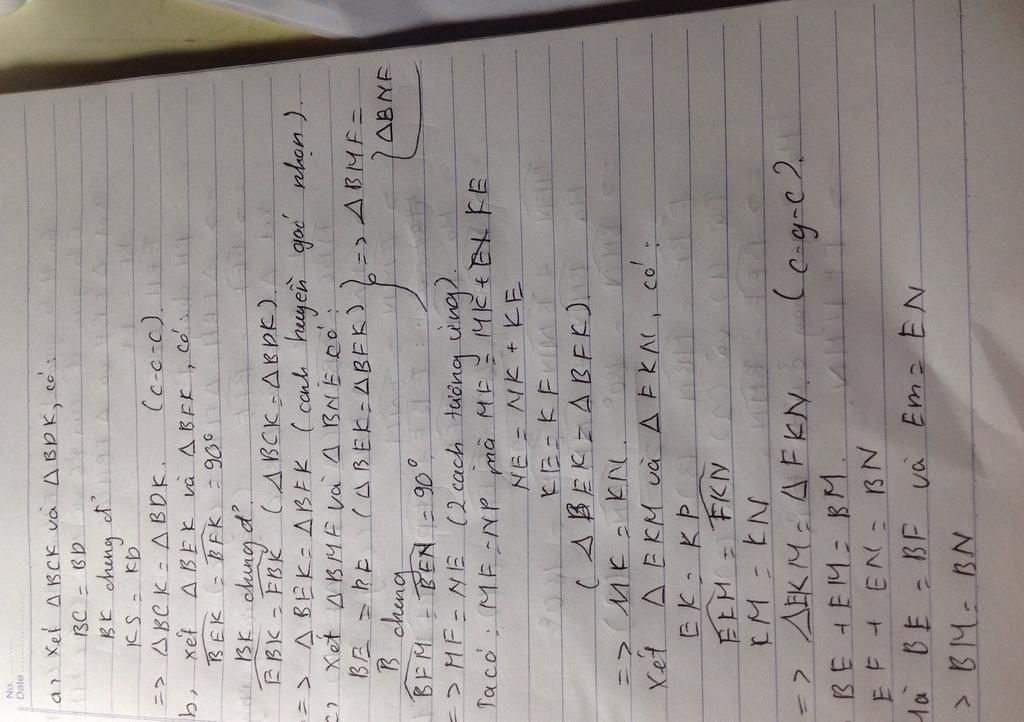 No.
Date
a, xét ΔBCK và ΔBDK, có:
BC = BD
BK chung
KS = KD
=> ΔBCK = ΔBDK. (c-c-c).
b, xét ΔBEK và ΔBFK, có:
BEK = BFK = 90°
BK chung
EBK = FBK (ΔBCK = ΔBDK).
=> ΔBEK = ΔBFK (cạnh huyền góc nhọn).
c, xét ΔBMF và ΔBNE có:
BE = BF (ΔBEK = ΔBFK) } => ΔBMF =
B chung ΔBNE
BFM = BEN = 90°
=> MF = NE (2 cạch tương ứng).
Ta có: MF = NP mà MF = MK + KE
NE = NK + KE
KE = KF
(ΔBEK = ΔBFK)
=> MK = KN.
xét ΔEKM và ΔFKN, có:
EK = KP
EKM = FKN
KM = KN
=> ΔEKM = ΔFKN. (c-g-c).
BE + EM = BM.
EF + EN = BN
Mà BE = BF và Em = EN
> BM = BN